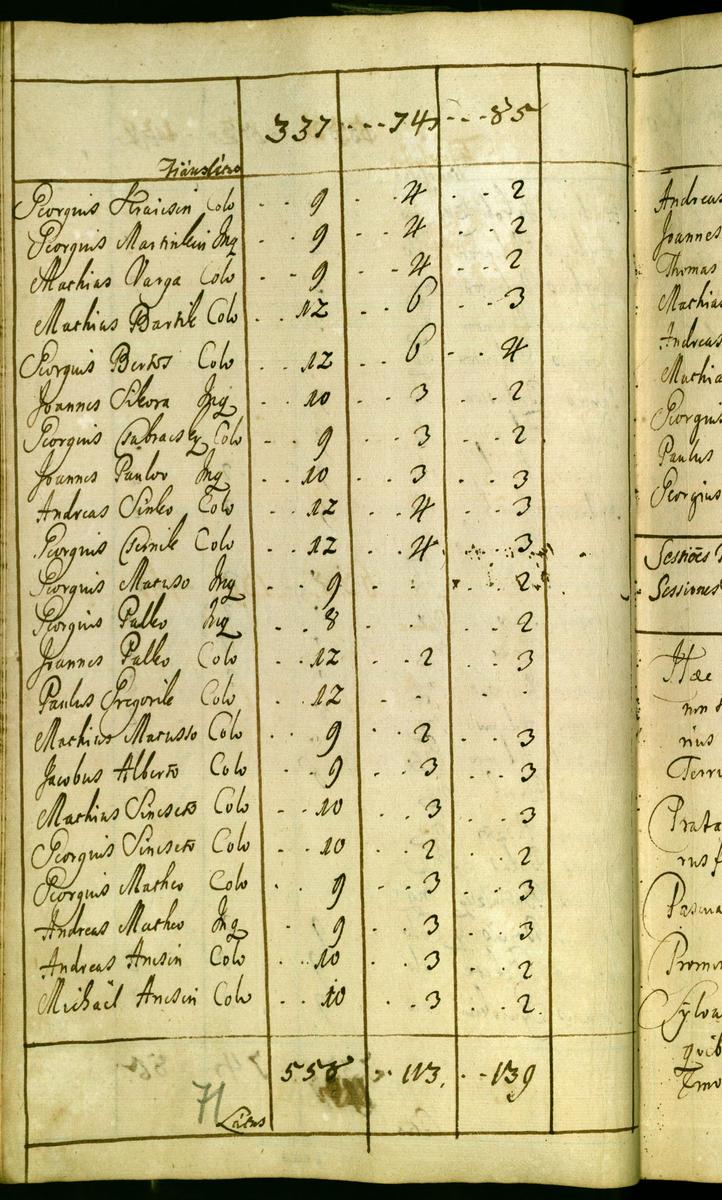 337 . . . 74 . . . 85
Georgius Colo . . 9 . . 4 . . 2
Georgius Martinkin Inq . . 9 . . 4 . . 2
Mathias Varga Colo . . 9 . . 4 . . 2
Mathias Bartik Colo . . 12 . . 6 . . 3
Georgius Bertos Colo . . 12 . . 6 . . 4
Joannes Sikora Inq . . 10 . . 3 . . 2
Georgius Colo . . 9 . . 3 . . 2
Joannes Paulov Inq . . 10 . . 3 . . 3
Andreas Sinko Colo . . 12 . . 4 . . 3
Georgius Colo . . 12 . . 4 . . 3
Georgius Matuso Inq . . 9 . . . . 2
Georgius Palko Inq . . 8 . . . . 2
Joannes Palko Colo . . 12 . . 2 . . 3
Paulus Gregorik Colo . . 12 . . . . .
Mathias Matusso Colo . . 9 . . 2 . . 3
Jacobus Alberto Colo . . 9 . . 3 . . 3
Mathias Colo . . 10 . . 3 . . 3
Georgius Colo . . 10 . . 2 . . 2
Georgius Matheo Colo . . 9 . . 3 . . 3
Andreas Matheo Inq . . 9 . . 3 . . 3
Andreas Ancsin Colo . . 10 . . 3 . . 2
Michaël Ancsin Colo . . 10 . . 3 . . 2
558 . . 113 . . 139
71 Latus
Andreas
Joannes
Thomas
Mathias
Andreas
Mathia
Georgius
Paulus
Georgius
Sessiões
Sessiones
Hæ
non
rius
Terri
Prata
rus
Pascua
Promon
Sylva
quib